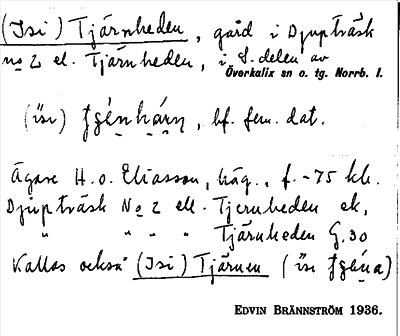 (Isi) Tjärnheden, gård i Djupträsk
no 2 el. Tjärnheden, i S. delen av
Överkalix sn o. tg. Norrb. l.
(isi) , bf. fem. dat.
Ägare H. o. Eliasson, häg., f. -75 kh.
Djupträsk No 2 ell. Tjernheden ek,
" " " " Tjärnheden G.30
Kallas också (Isi) Tjärnen (isi
EDVIN BRÄNNSTRÖM 1936.